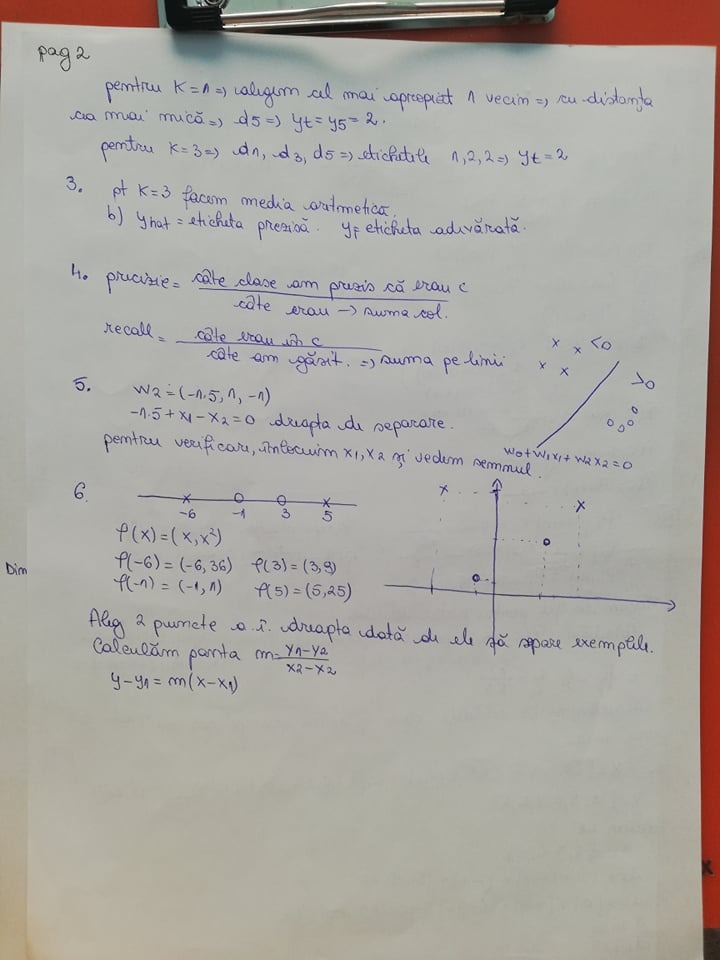 pag 2
pentru K=1 => alegem cel mai apropiat 1 vecin => cu distanța
cea mai mică => d5 => yt = y5 = 2.
pentru K=3 => d1, d3, d5 => etichetele 1,2,2 => yt = 2
3. pt K=3 facem media aritmetică.
b) yhat = eticheta prezisă. yt eticheta adevărată.
4. precizie = câte clase am prezis că erau c
câte erau -> suma col.
recall = câte erau în c
câte am găsit. => suma pe linii
x x <0
x x
>0
w0+w1x1+w2x2=0
5. w2 = (-1.5, 1, -1)
-1.5+x1-x2=0 dreapta de separare.
pentru verificare, înlocuim x1, x2 și vedem semnul.
6. -6 -1 3 5
φ(x) = (x, x²)
φ(-6) = (-6, 36) φ(3) = (3, 9)
φ(-1) = (-1, 1) φ(5) = (5, 25)
Dim
Aleg 2 puncte a.î. dreapta dată de ele să separe exemplele.
Calculăm panta m = y1-y2
x2-x2
y-y1 = m(x-x1)